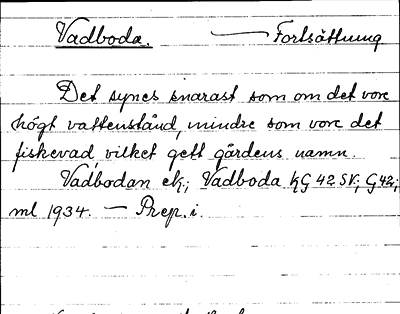 Vadboda. — Fortsättning
Det synes snarast som om det vore
högt vattenstånd, mindre som vore det
fiskevad, vilket gett gårdens namn.
Vadbodan ek.; Vadboda KG 42 SV; G 42;
ml 1934. — Prep. i.